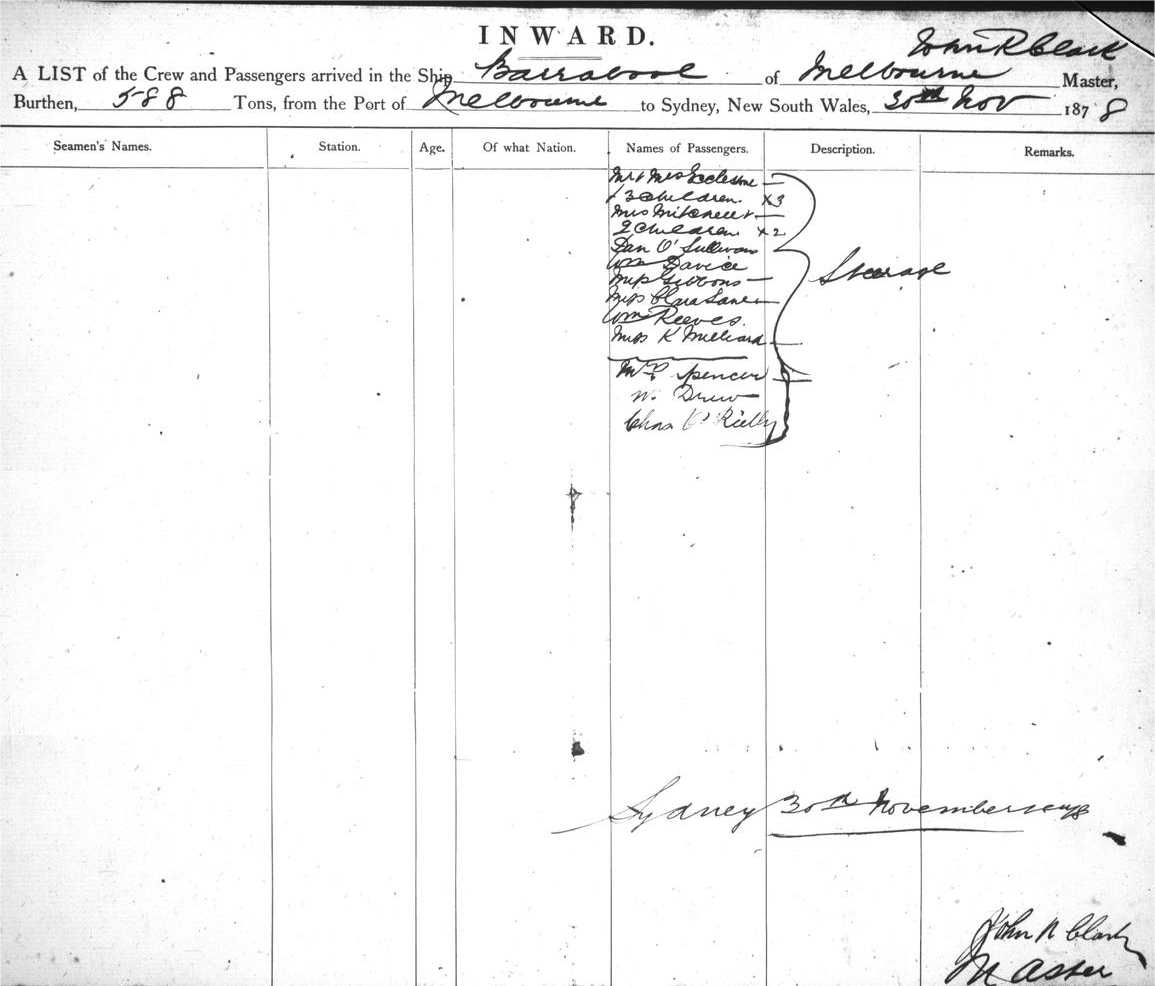 INWARD.
John R Clark
A LIST of the Crew and Passengers arrived in the Ship Barrabool of Melbourne Master,
Burthen, 588 Tons, from the Port of Melbourne to Sydney, New South Wales, 30th Nov 1878
Seamen's Names. Station. Age. Of what Nation. Names of Passengers. Description. Remarks.
Mr & Mrs Ecclestone
3 Children x3
Mrs Mitchell
2 Children x2
Dan O'Sullivan
Wm Davice
Miss Gibbons
Miss Clara Lane
Wm Reeves
Miss K Milliard
Steerage
Spencer
W. Drew
Chas Rielly
Sydney 30th November 1878
John R Clark
Master